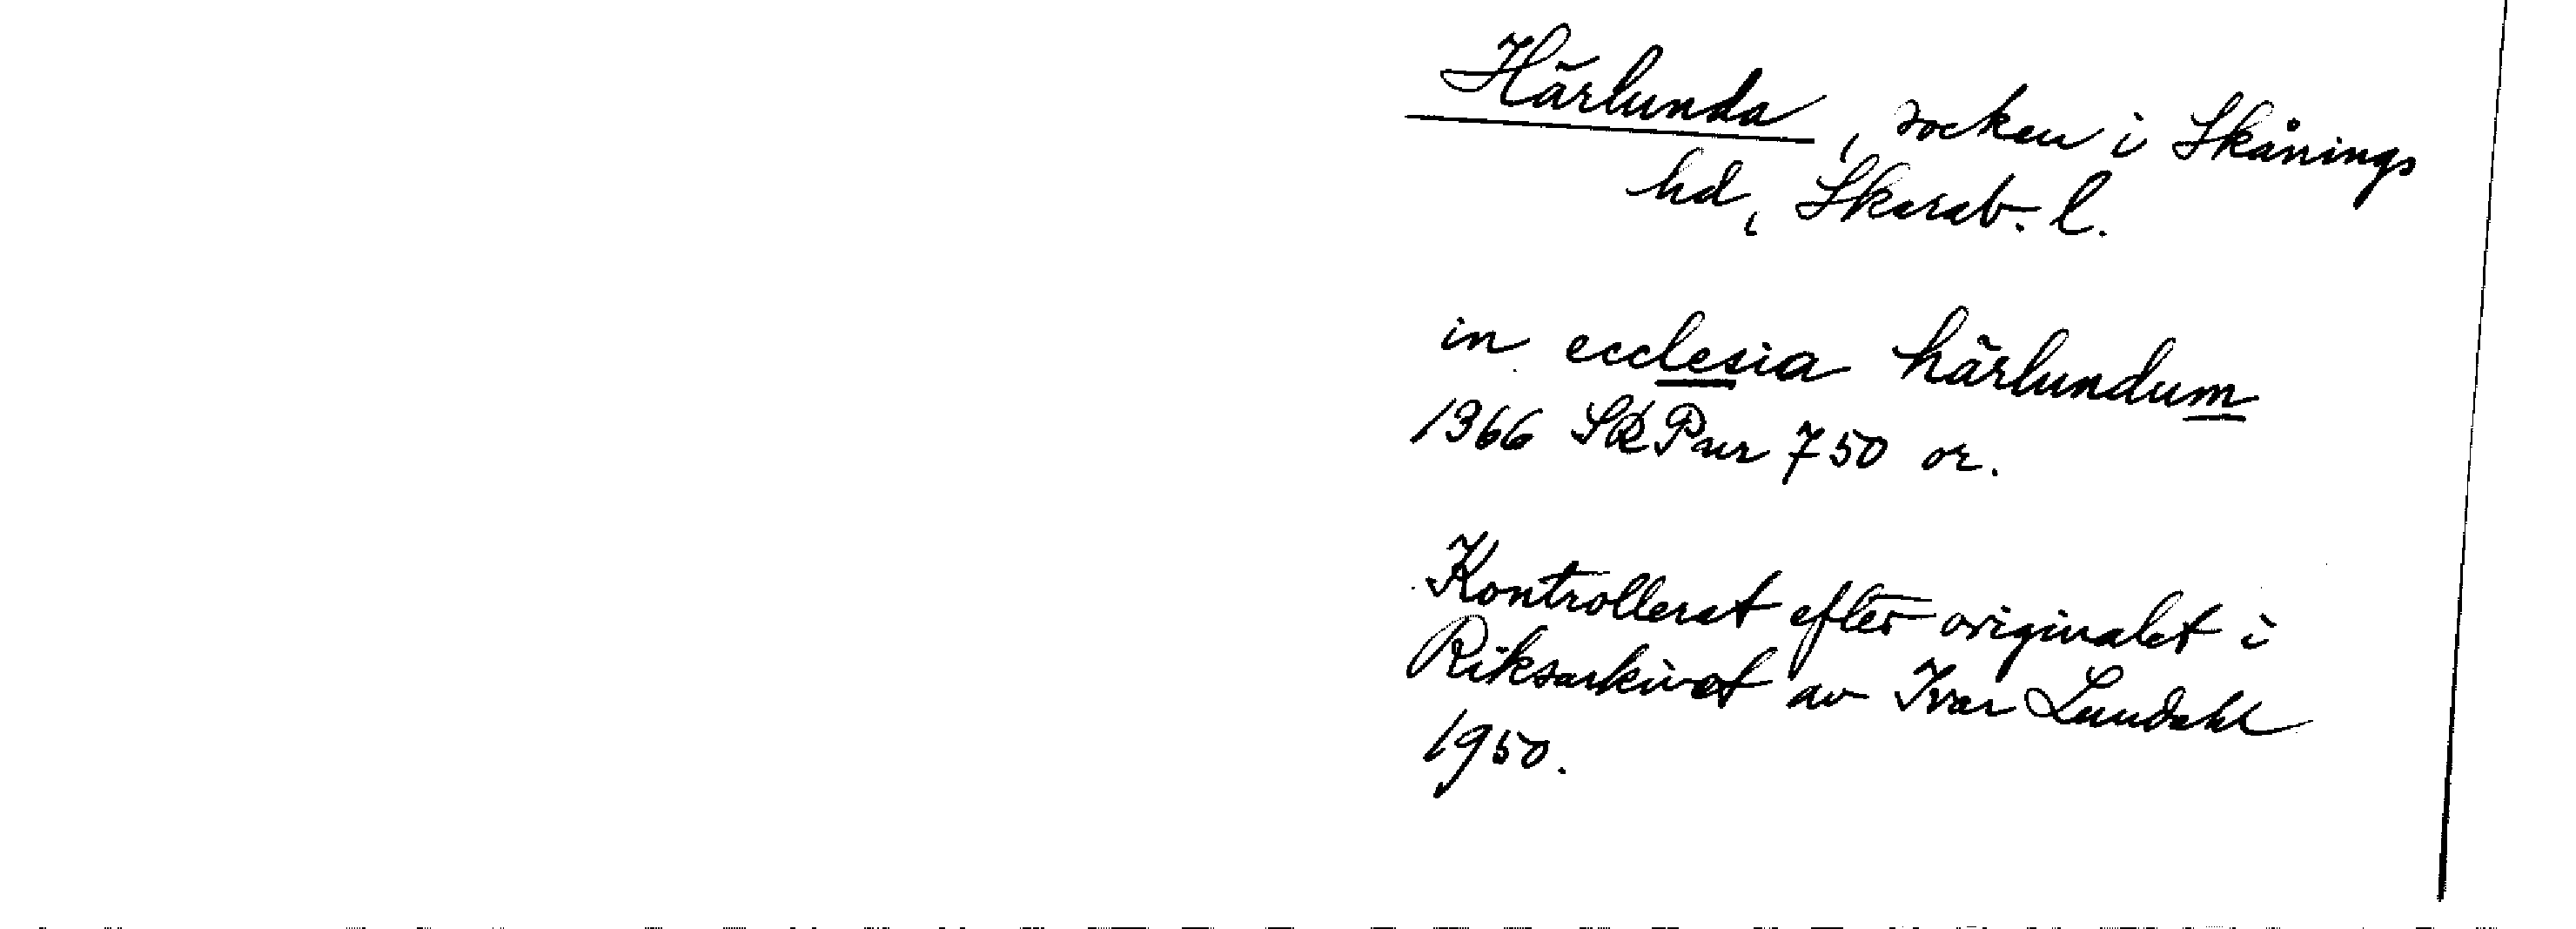 Härlunda, socken i Skånings
hd, Skarab. l.
in ecclesia härlundum
1366 SRPur 750 or.
Kontrollerat efter originalet i
Riksarkivet av Ivar Lundahl
1950.